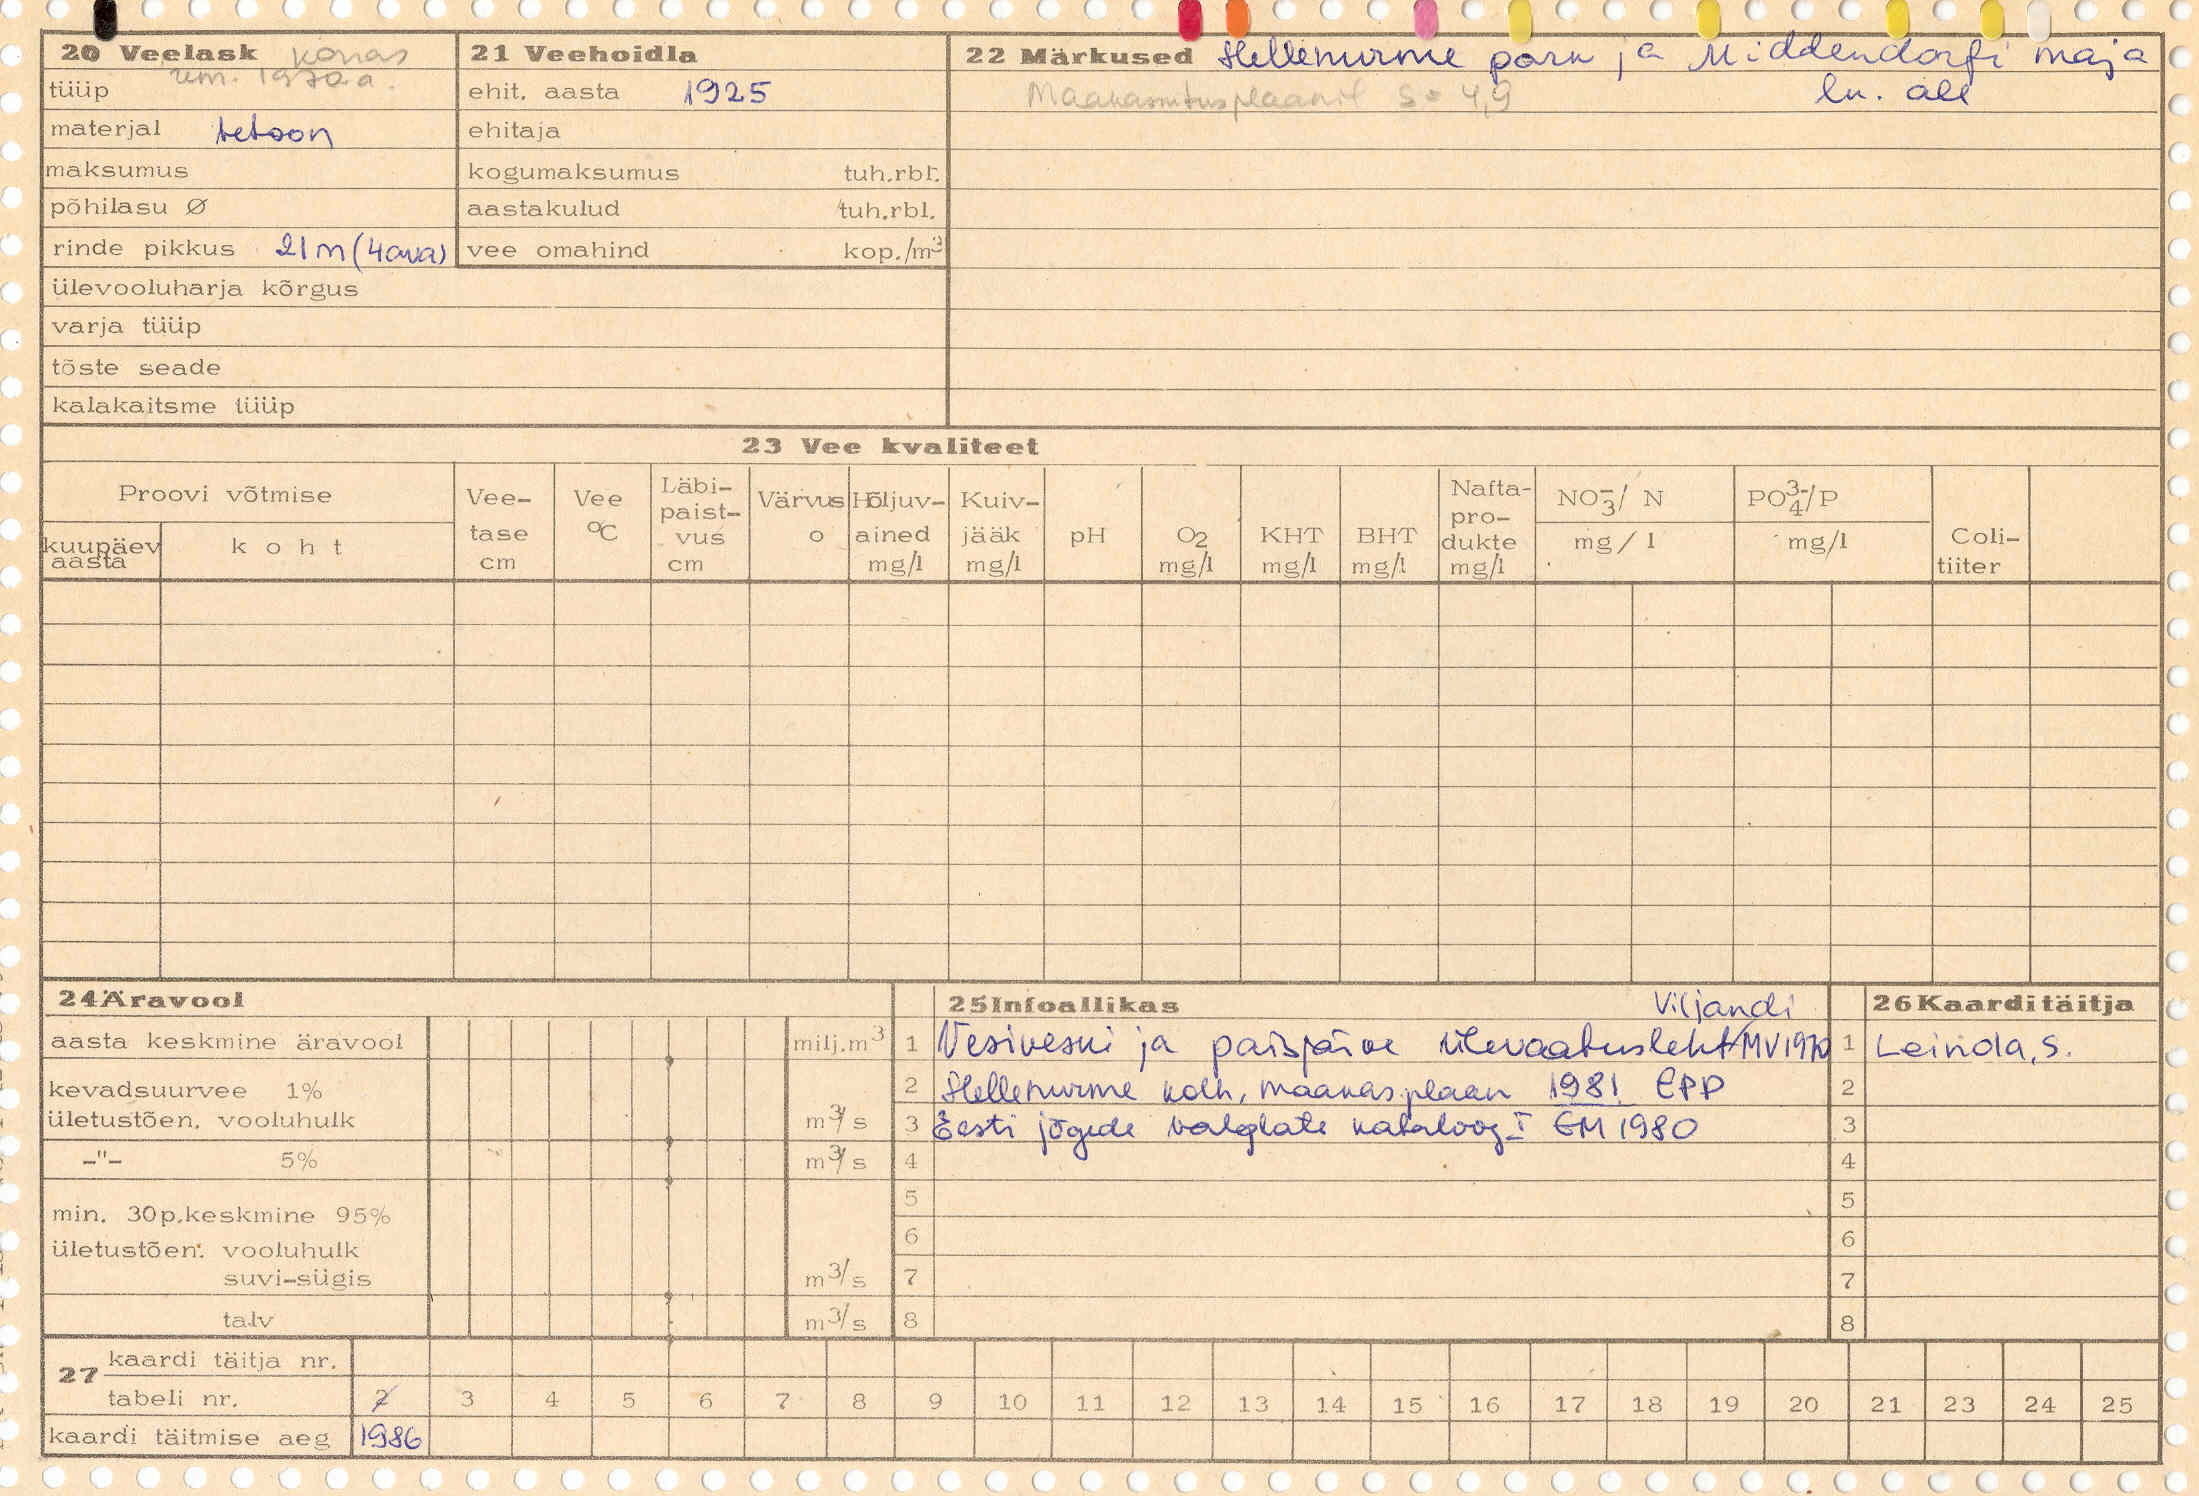 20 Veelask korras
rem. 1970.a.
tüüp
materjal betoon
maksumus
põhilasu Ø
rinde pikkus 21m (4 ava)
ülevooluharja kõrgus
varja tüüp
tõste seade
kalakaitsme tüüp
21 Veehoidla
ehit. aasta 1925
ehitaja
kogumaksumus tuh.rbl.
aastakulud tuh.rbl.
vee omahind kop./m³
22 Märkused Hellenurme park ja Middendorfi maja
lk. all
Maakasutusplaanil S = 4,9
23 Vee kvaliteet
Proovi võtmise
kuupäev aasta
koht
Vee-tase cm
Vee °C
Läbi-paist-vus cm
Värvus o
Hõljuv-ained mg/l
Kuiv-jääk mg/l
pH
O2 mg/l
KHT mg/l
BHT mg/l
Nafta-pro-dukte mg/l
NO3-/ N mg/l
PO4 3-/P mg/l
Coli-tiiter
24 Äravool
aasta keskmine äravool milj.m³
kevadsuurvee 1%
ületustõen. vooluhulk m³/s
-"- 5% m³/s
min. 30p.keskmine 95%
ületustõen. vooluhulk
suvi-sügis m³/s
talv m³/s
25 Infoallikas
Viljandi
1 Vesiveski ja paisjärve ülevaatusleht MV 1970
2 Hellenurme kolh. maakas.plaan 1981 EPP
3 Eesti jõgede valglate kataloog I EM 1980
4
5
6
7
8
26 Kaarditäitja
1 Leinola, S.
2
3
4
5
6
7
8
27 kaardi täitja nr.
tabeli nr. 2 3 4 5 6 7 8 9 10 11 12 13 14 15 16 17 18 19 20 21 23 24 25
kaardi täitmise aeg 1986